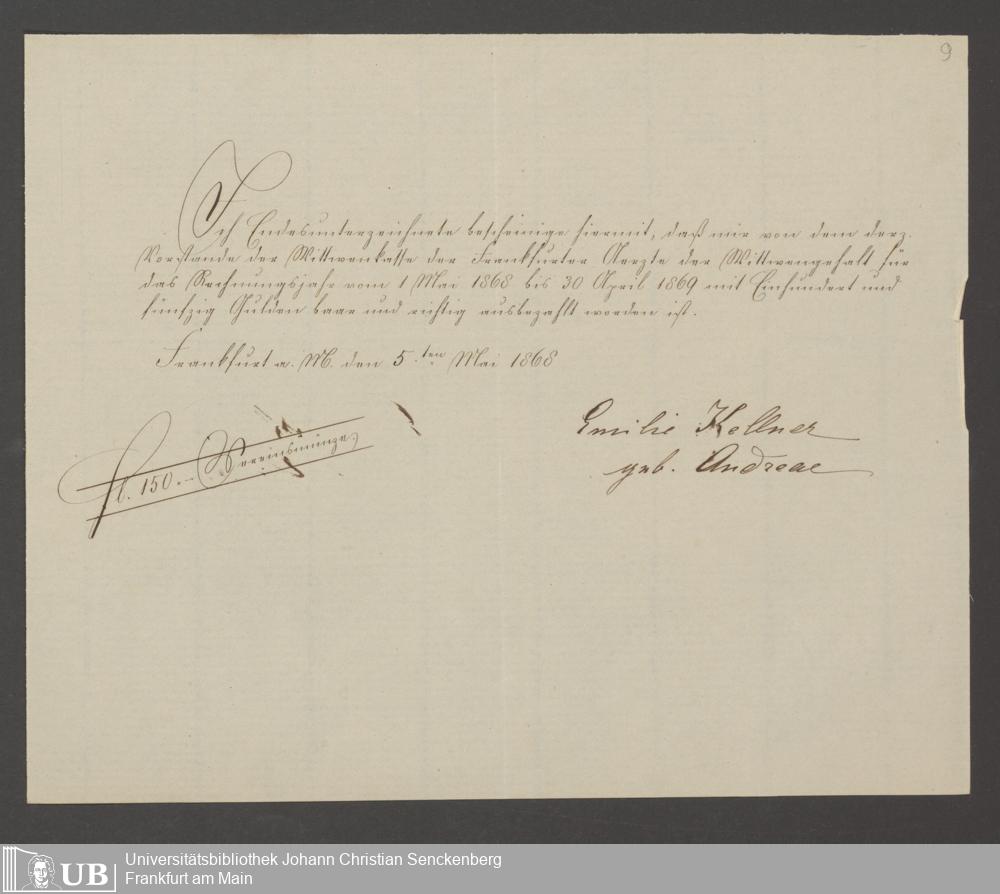 9
Ich Endesunterzeichnete bescheinige hiermit, daß mir von dem derz.
Vorstande der Wittwenkasse der Frankfurter Aerzte der Wittwengehalt für
das Rechnungsjahr vom 1 Mai 1868 bis 30 April 1869 mit Einhundert und
fünfzig Gulden baar und richtig ausbezahlt worden ist.
Frankfurt a. M. den 5.ten Mai 1868
Emilie Kellner
geb. Andreae
fl. 150.– Vereinsmünze.
UB
Universitätsbibliothek Johann Christian Senckenberg
Frankfurt am Main